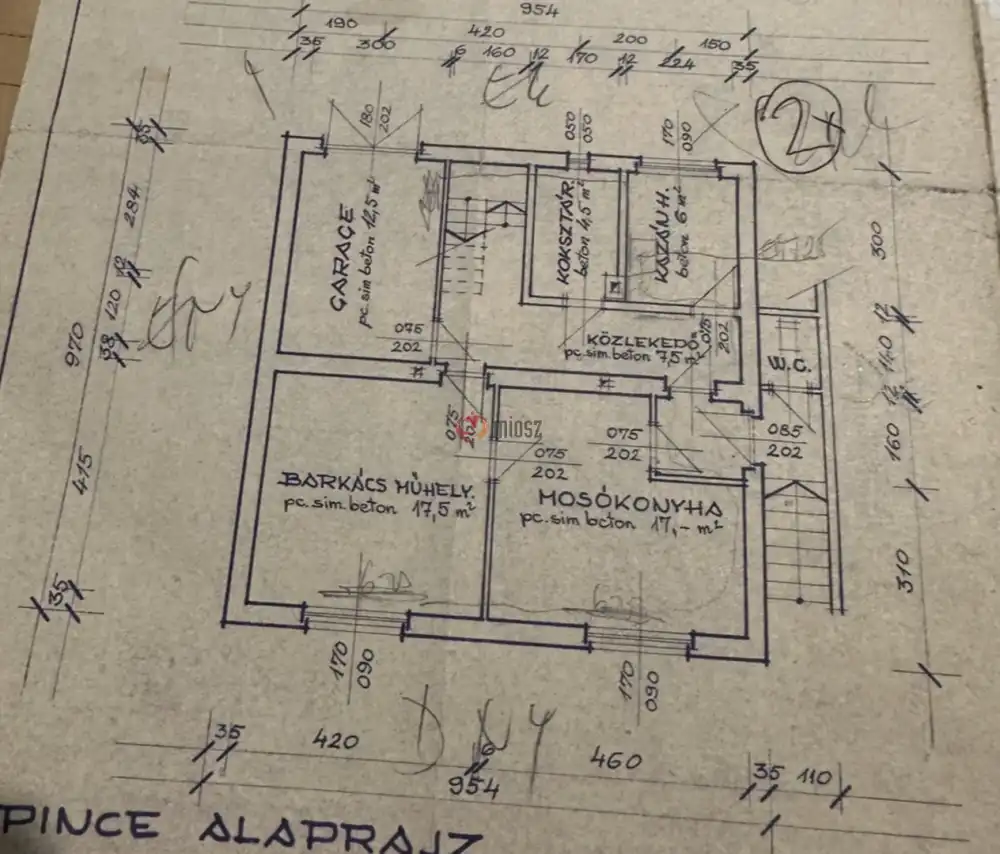 954
190 420 200 150
35 300 6 160 12 170 12 224 35
180
202
050
050
170
090
2x
GARAGE
pc.sim beton 12,5 m²
KOKSZTÁR.
beton 4,5 m²
KAZÁNH.
beton 6 m²
KÖZLEKEDŐ
pc.sim.beton 7,5 m²
W.C.
075
202
075
202
075
202
075
202
075
202
085
202
miosz
BARKÁCS MŰHELY.
pc.sim.beton 17,5 m²
MOSÓKONYHA
pc.sim beton 17,- m²
170
090
170
090
35
284
12
120
38
970
415
35
300
12
140
12
160
310
35 420 6 460 35 110
954
PINCE ALAPRAJZ